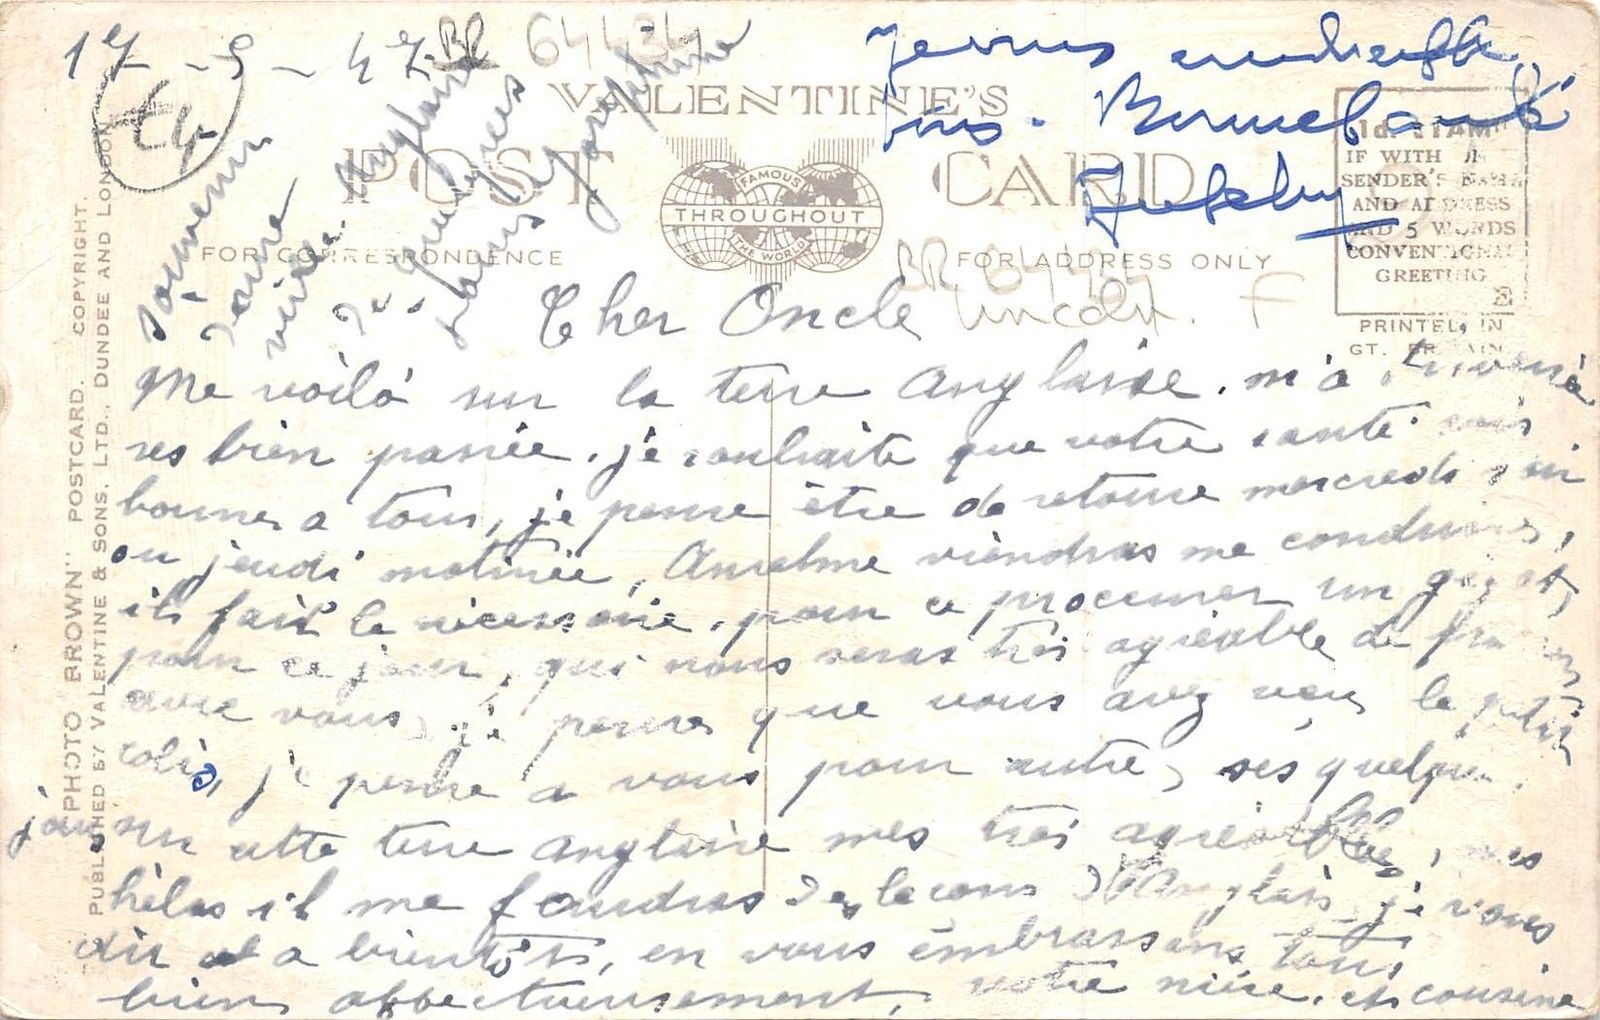 17-5-47
BR 64434
VALENTINE'S
POST CARD
FAMOUS
THROUGHOUT
THE WORLD
FOR CORRESPONDENCE
FOR ADDRESS ONLY
1d. STAMP
IF WITH
SENDER'S NAME
AND ADDRESS
AND 5 WORDS
CONVENTIONAL
GREETING
PRINTED IN
GT. BRITAIN
"PHOTO BROWN" POSTCARD. COPYRIGHT.
PUBLISHED BY VALENTINE & SONS, LTD., DUNDEE AND LONDON
souvenir
Anglaise
Josephine
BR 64434
Lincoln. F
Cher Oncle
Me voilà sur la terre Anglaise. m'a traversé
ses bien passée. je souhaite que votre santé sois
bonnes a tous, je pense être de retour mercredi soir
ou jeudi matinée, Anselme viendras me conduire,
il fait le nécessaire, pour ce procurer un
pour ce jour, qui nous seras très agréable de
avec vous, je pense que vous avez veu le petit
colis, je pense a vous pour autre, ses quelque
jour sur cette terre Anglaise mes très agréable, mes
hélas il me faudras des lecons d'Anglais, je vous
dir a bientôt, en vous embrassans tous
bien affectueusement, votre nièce. et cousine